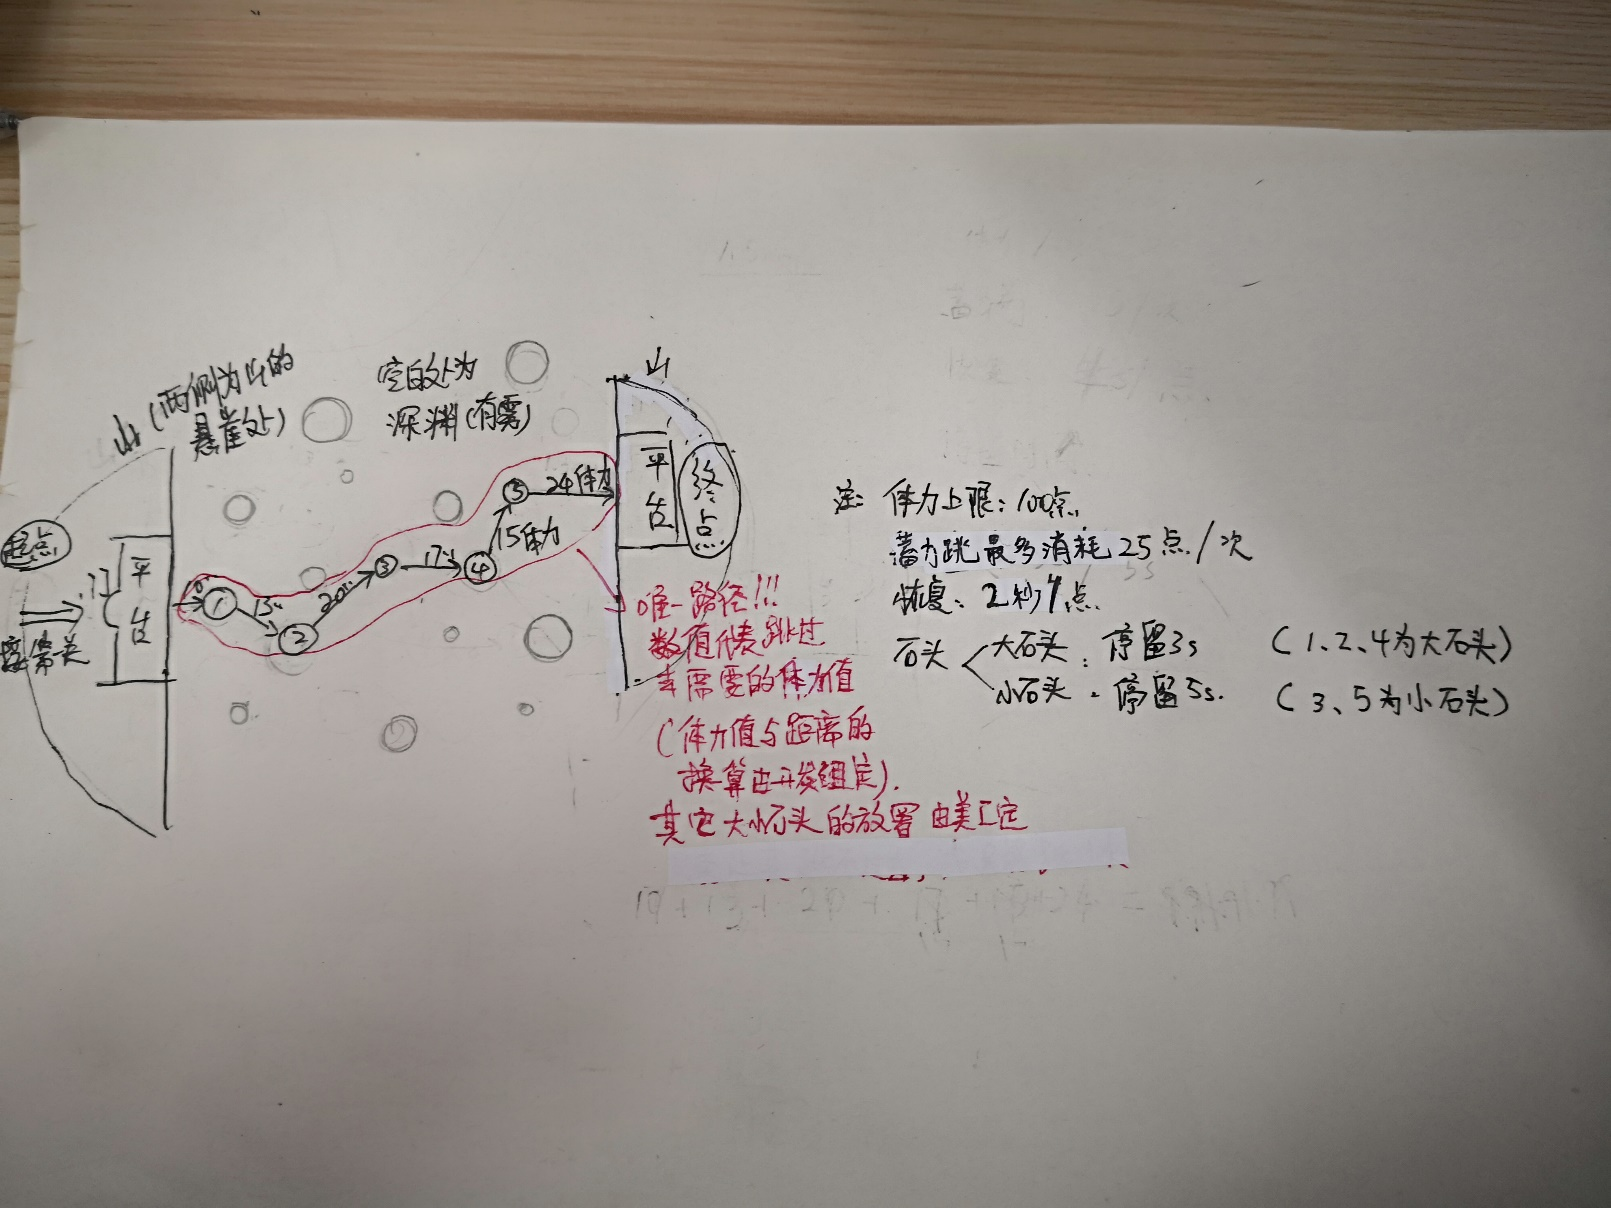 山(两侧为山的
悬崖处)
空白处为
深渊(有雾)
山
起点
平
台
10
①
13
②
20
③
17
④
15体力
⑤
24体力
平
台
终点
唯一路径!!!
数值代表跳过
去需要的体力值
(体力值与距离的
换算由开发组定).
其它大小石头的放置由美工定
注: 体力上限:100点.
蓄力跳最多消耗25点/次
恢复:2秒1点.
石头
大石头:停留3s (1、2、4为大石头)
小石头:停留5s. (3、5为小石头)